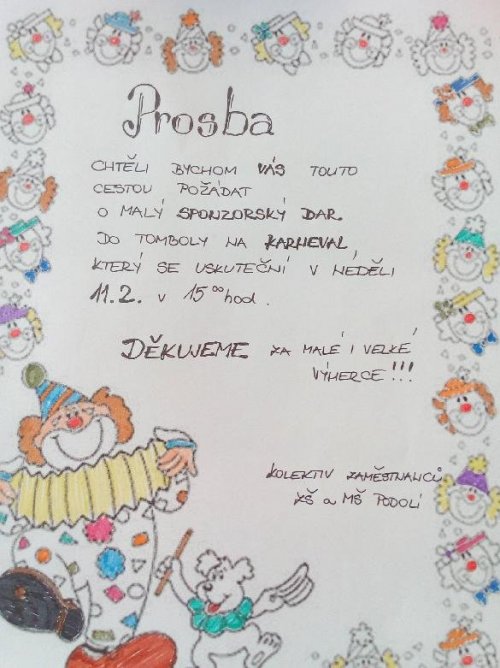 Prosba
CHTĚLI BYCHOM VÁS TOUTO
CESTOU POŽÁDAT
O MALÝ SPONZORSKÝ DAR
DO TOMBOLY NA KARNEVAL,
KTERÝ SE USKUTEČNÍ V NEDĚLI
11.2. v 15⁰⁰ hod.
DĚKUJEME ZA MALÉ I VELKÉ
VÝHERCE!!!
KOLEKTIV ZAMĚSTNANCŮ
ZŠ a MŠ PODOLÍ